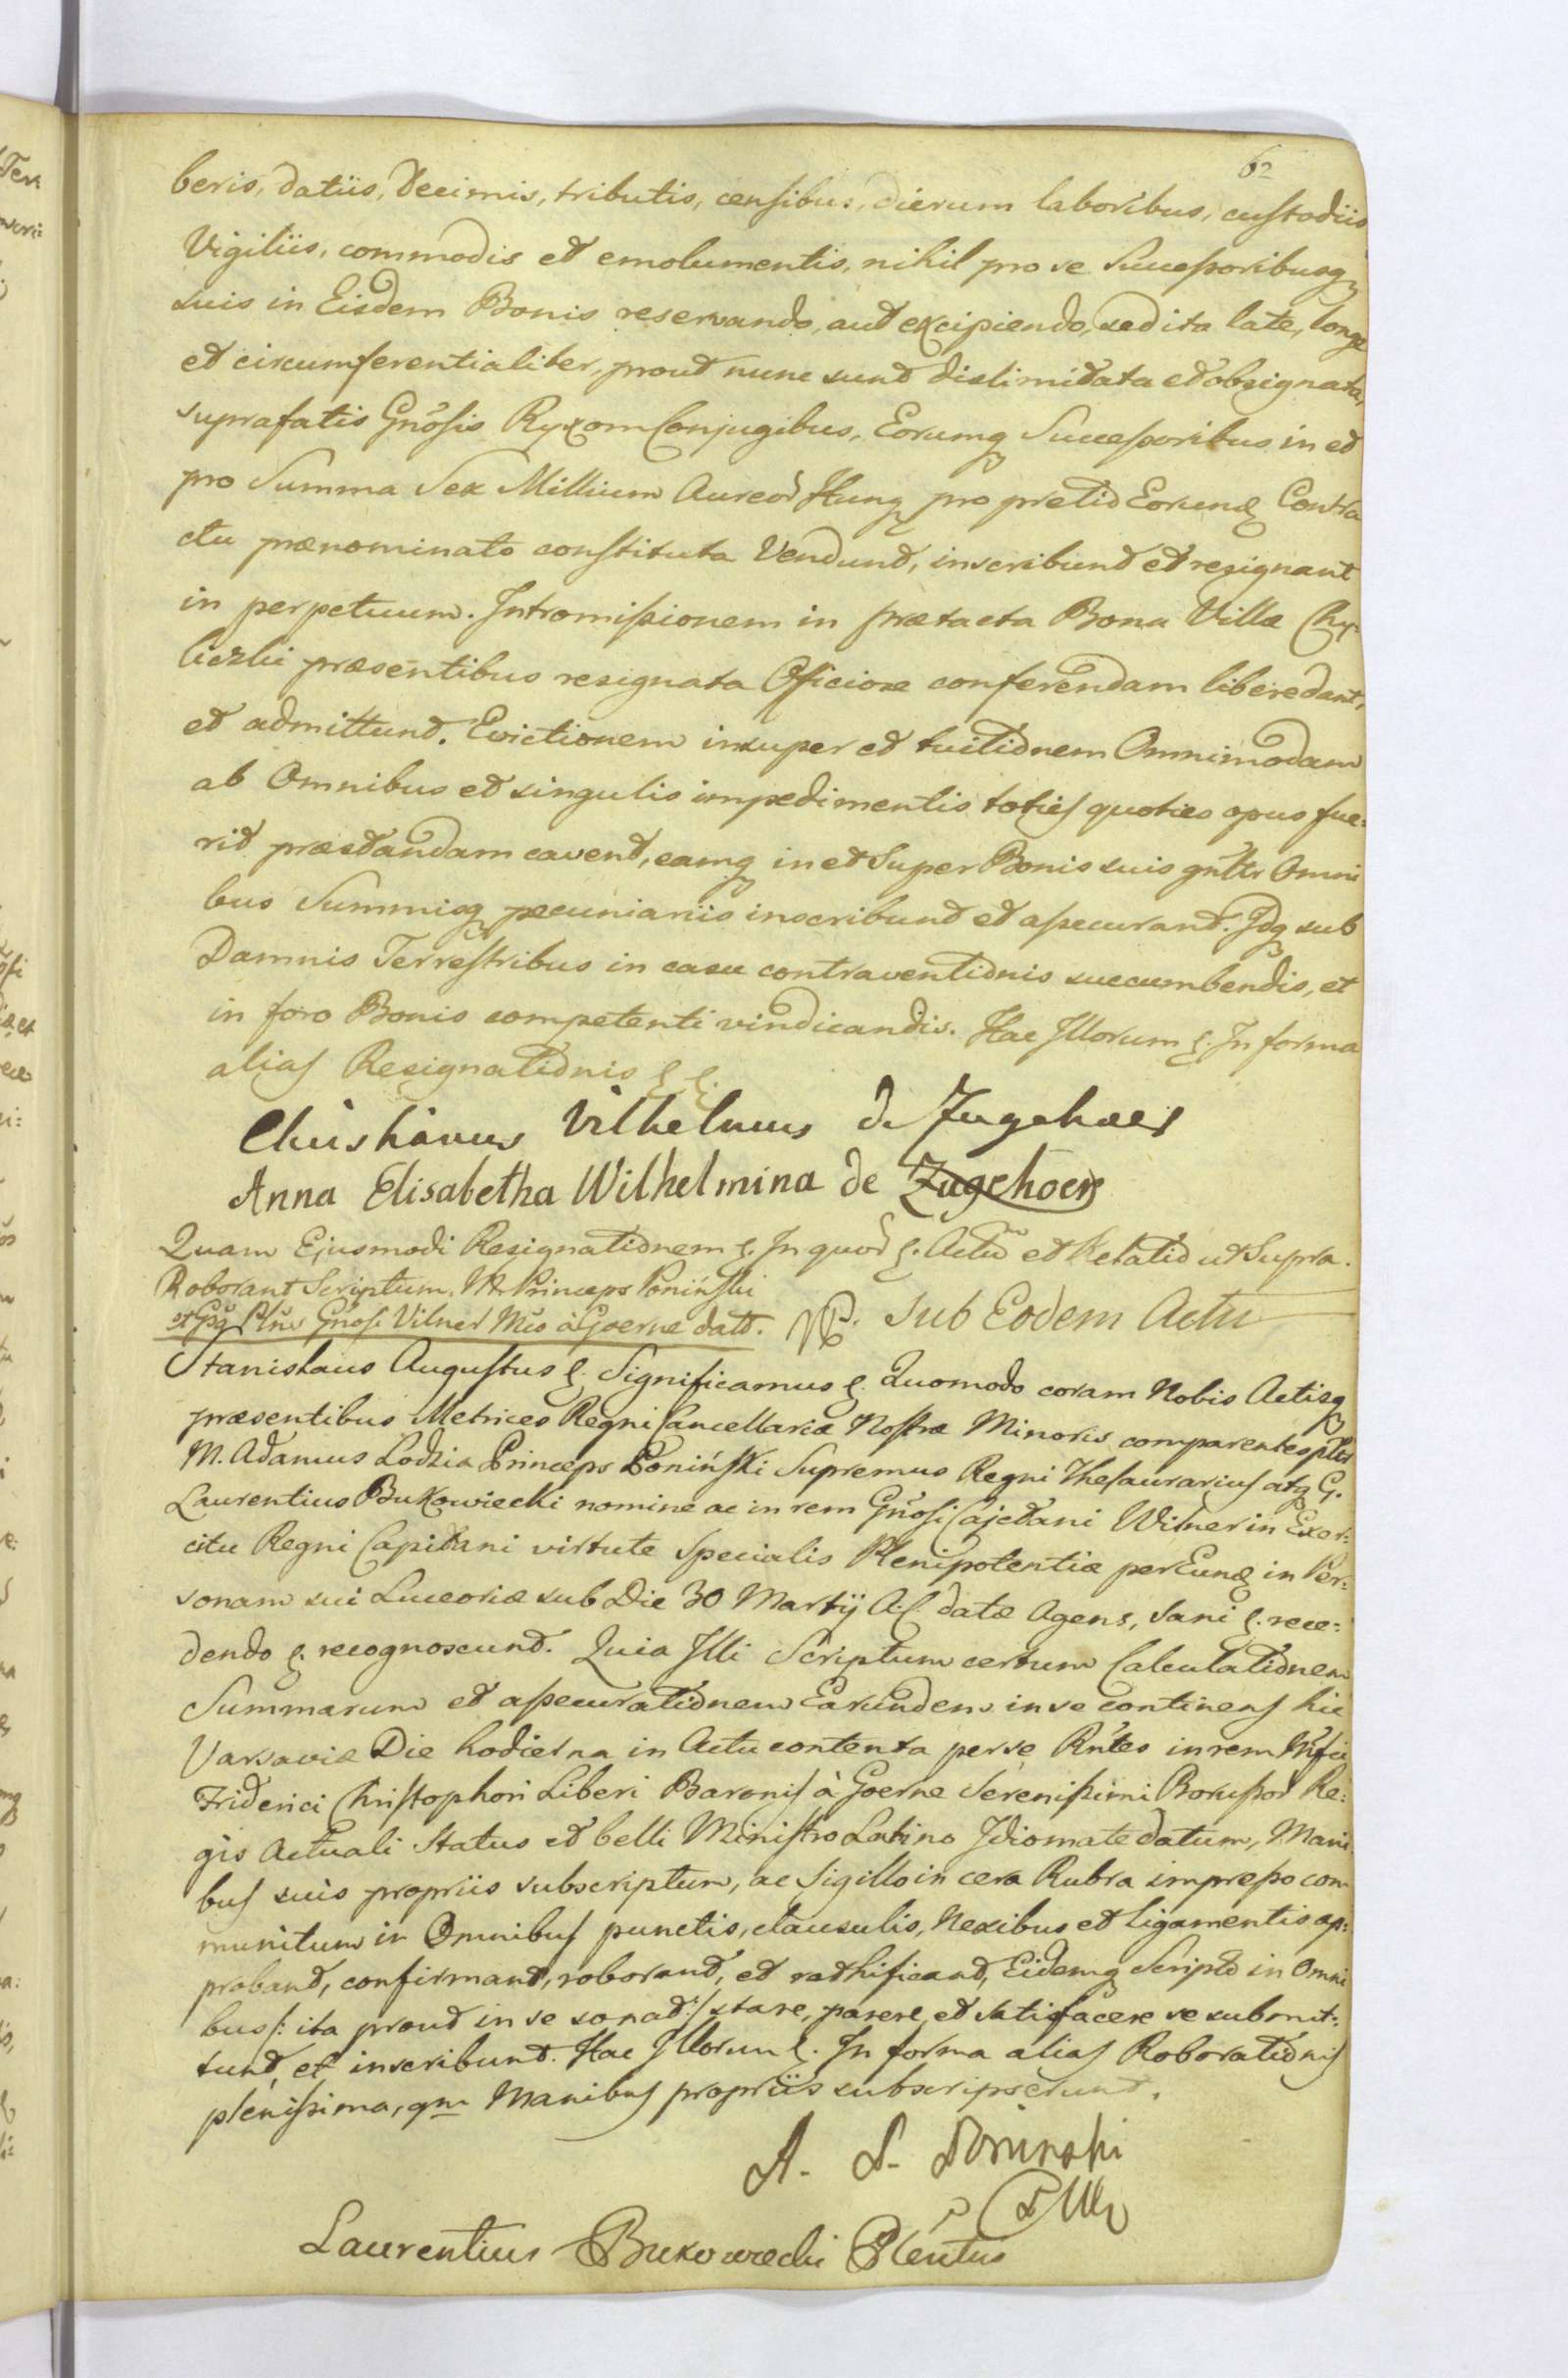 62
beris, datiis, Decimis, tributis, censibus, dierum laboribus, custodiis
Vigiliis, commodis et emolumentis, nihil pro se Successoribusq
suis in Eisdem Bonis reservando, aut excipiendo, sed ita late, longe
et circumferentialiter, prout nunc sunt dislimitata et obsignata,
suprafatis Gnosis Ryxom Conjugibus, Eorumq Successoribus in et
pro Summa Sex Millium Aureor Hung pro pretio Eorund Contra
ctu prænominato constituta Vendunt, inscribunt et resignant
in perpetuum. Intromissionem in prætacta Bona Villæ Chy-
liczki præsentibus resignata Officiose conferendam libere dant,
et admittunt. Evictionem insuper et tuitionem Omnimodam
ab Omnibus et singulis impedimentis toties quoties opus fue:
rit præstandam cavent, eamq in et Super Bonis suis gnltr Omni
bus Summisq pecuniariis inscribunt et assecurant. Idq sub
Damnis Terrestribus in casu contraventionis succumbendis, et
in foro Bonis competenti vindicandis. Hac Illorum &. In forma
alias Resignationis & &.
Christianus Vilhelmus de Zugehoer
Anna Elisabetha Wilhelmina de Zugehoer
Quam Ejusmodi Resignationem &. In quor &. Actum et Relatio ut Supra.
Roborant Scriptum, M. Princeps Poniński
et Gsq Plnus Gnosi Vilner Mco à Goerne datt.
Sub Eodem Actu
Stanislaus Augustus &. Significamus &. Quomodo coram Nobis Actisq
præsentibus Metrices Regni Cancellariæ Nostræ Minoris comparentes pltr
M. Adamus Lodzia Princeps Poniński Supremus Regni Thesaurarius atq G.
Laurentius Bukowiecki nomine ac in rem Gnosi Cajetani Wilner in Exer:
citu Regni Capitani virtute Specialis Plenipotentiæ per Eund in Per:
sonam sui Luceoriæ sub Die 30 Martij A.C. datæ Agens, Sani &. rece:
dendo &. recognoscunt. Quia Illi Scriptum certum Calculationem
Summarum et assecurationem Earundem in se continens hic
Varsaviæ Die hodierna in Actu contenta per se Rntes in rem Mfici
Friderici Christophori Liberi Baronis à Goerne Serenissimi Borussor Re:
gis Actuali Status et belli Ministro Latino Idiomate datum, Mani
bus suis propriis subscriptum, ac Sigillo in cera Rubra impresso com
munitum in Omnibus punctis, clausulis, Nexibus et Ligamentis ap:
probant, confirmant, roborant, et rathificant, Eidemq Scripto in Omni
bus /: ita prout in se sonat :/ stare, parere, et satisfacere se submit:
tunt, et inscribunt. Hac Illorum &. In forma alias Roborationis
plenissima, qm Manibus propriis subscripserunt.
A. L. Poninski
Laurentius Bukowiecki Plentus